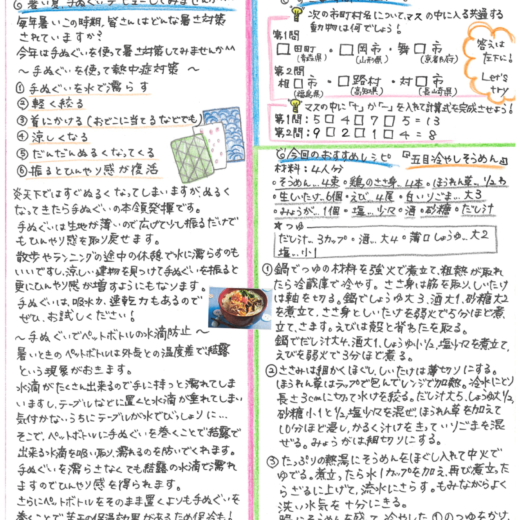 毎年暑いこの時期、皆さんはどんな暑さ対策
されていますか?
今年は手ぬぐいを使って暑さ対策してみませんか^^
〜手ぬぐいを使って熱中症対策〜
① 手ぬぐいを水で濡らす
② 軽く絞る
③ 首にかける(おでこに当てるなどでも)
④ 涼しくなる
⑤ だんだんぬるくなってくる
⑥ 振るとひんやり感が復活
炎天下ではすぐぬるくなってしまいますが、ぬるく
なってきたら手ぬぐいの本領発揮です。
手ぬぐいは生地が薄いので広げて少し振るだけで
もひんやり感を取り戻せます。
散歩やランニングの途中の休憩で水に濡らすのも
いいですし、涼しい建物を見つけ手ぬぐいを振ると
更にひんやり感が増すようにもなります。
手ぬぐいは、吸水力、速乾力もあるので
ぜひ、お試しください!
〜手ぬぐいでペットボトルの水滴防止〜
暑いときのペットボトルは外気との温度差で結露
という現象がおきます。
水滴がたくさん出来るので手に持つと濡れてしま
いますし、テーブルなどに置くと水滴が垂れてしまい
気付かないうちにテーブルが水でびっしょりに…
そこで、ペットボトルに手ぬぐいを巻くことで結露で
出来る水滴を吸い取り、濡れるのを防いでくれます。
手ぬぐいを濡らさなくても結露の水滴で濡れ
ますのでひんやり感を得られます。
さらにペットボトルをそのまま置くよりも手ぬぐいを
次の市町村名について、マスの中に入る共通する
動物は何でしょう!
第1問
□田町・□岡市・舞□市
(青森県) (山形県) (京都府)
第2問
相□市・□路村・村□市
(福島県) (高知県) (岡山県)
答えは
下に!
Let's
try
マスの中に「+」か「-」を入れて計算式を完成させよう!
第1問:5□4□7□5=13
第2問:9□2□1□4=8
◎今回のおすすめレシピ 『五目冷やしそうめん』
材料:4人分
・そうめん…4束 ・鶏のささ身…4本 ・ほうれん草…1/2わ
・生しいたけ…6個 ・えび…4尾 ・白いりごま…大3
・みょうが…1個 ・塩…少々 ・酒 ・砂糖 ・だし汁
*つゆ
だし汁…3カップ ・酒…大4 ・薄口しょうゆ…大2
塩…小1
① 鍋でつゆの材料を強火で煮立て、粗熱が取れ
たら冷蔵庫で冷やす。ささ身は筋を取り、しいたけ
は軸をつける。鍋でしょうゆ大3、酒大1、砂糖大2
を煮立て、ささ身としいたけを弱火で5分ほど煮
立て、さます。えびは殻と背わたを取る。
鍋でだし汁大4、酒大1、しょうゆ小1/2、塩少々を煮立て、
えびを弱火で3分ほど煮る。
② ささみは細かくほぐし、しいたけは薄切りにする。
ほうれん草はラップで包んでレンジで加熱。冷水にとり
長さ3cmに切って水けを絞る。だし汁大5、しょうゆ大1/2、
砂糖小1と1/2、塩少々を混ぜ、ほうれん草を加えて
10分ほど浸し、かるく汁けをきっていりごまを混
ぜる。みょうがは細切りにする。
③ たっぷりの熱湯にそうめんをほぐし入れて中火で
ゆでる。煮立ったら水1カップを加え、再び煮立った
らざるに上げて、流水にさらす。もみながらよく
洗い水気を十分にきる。